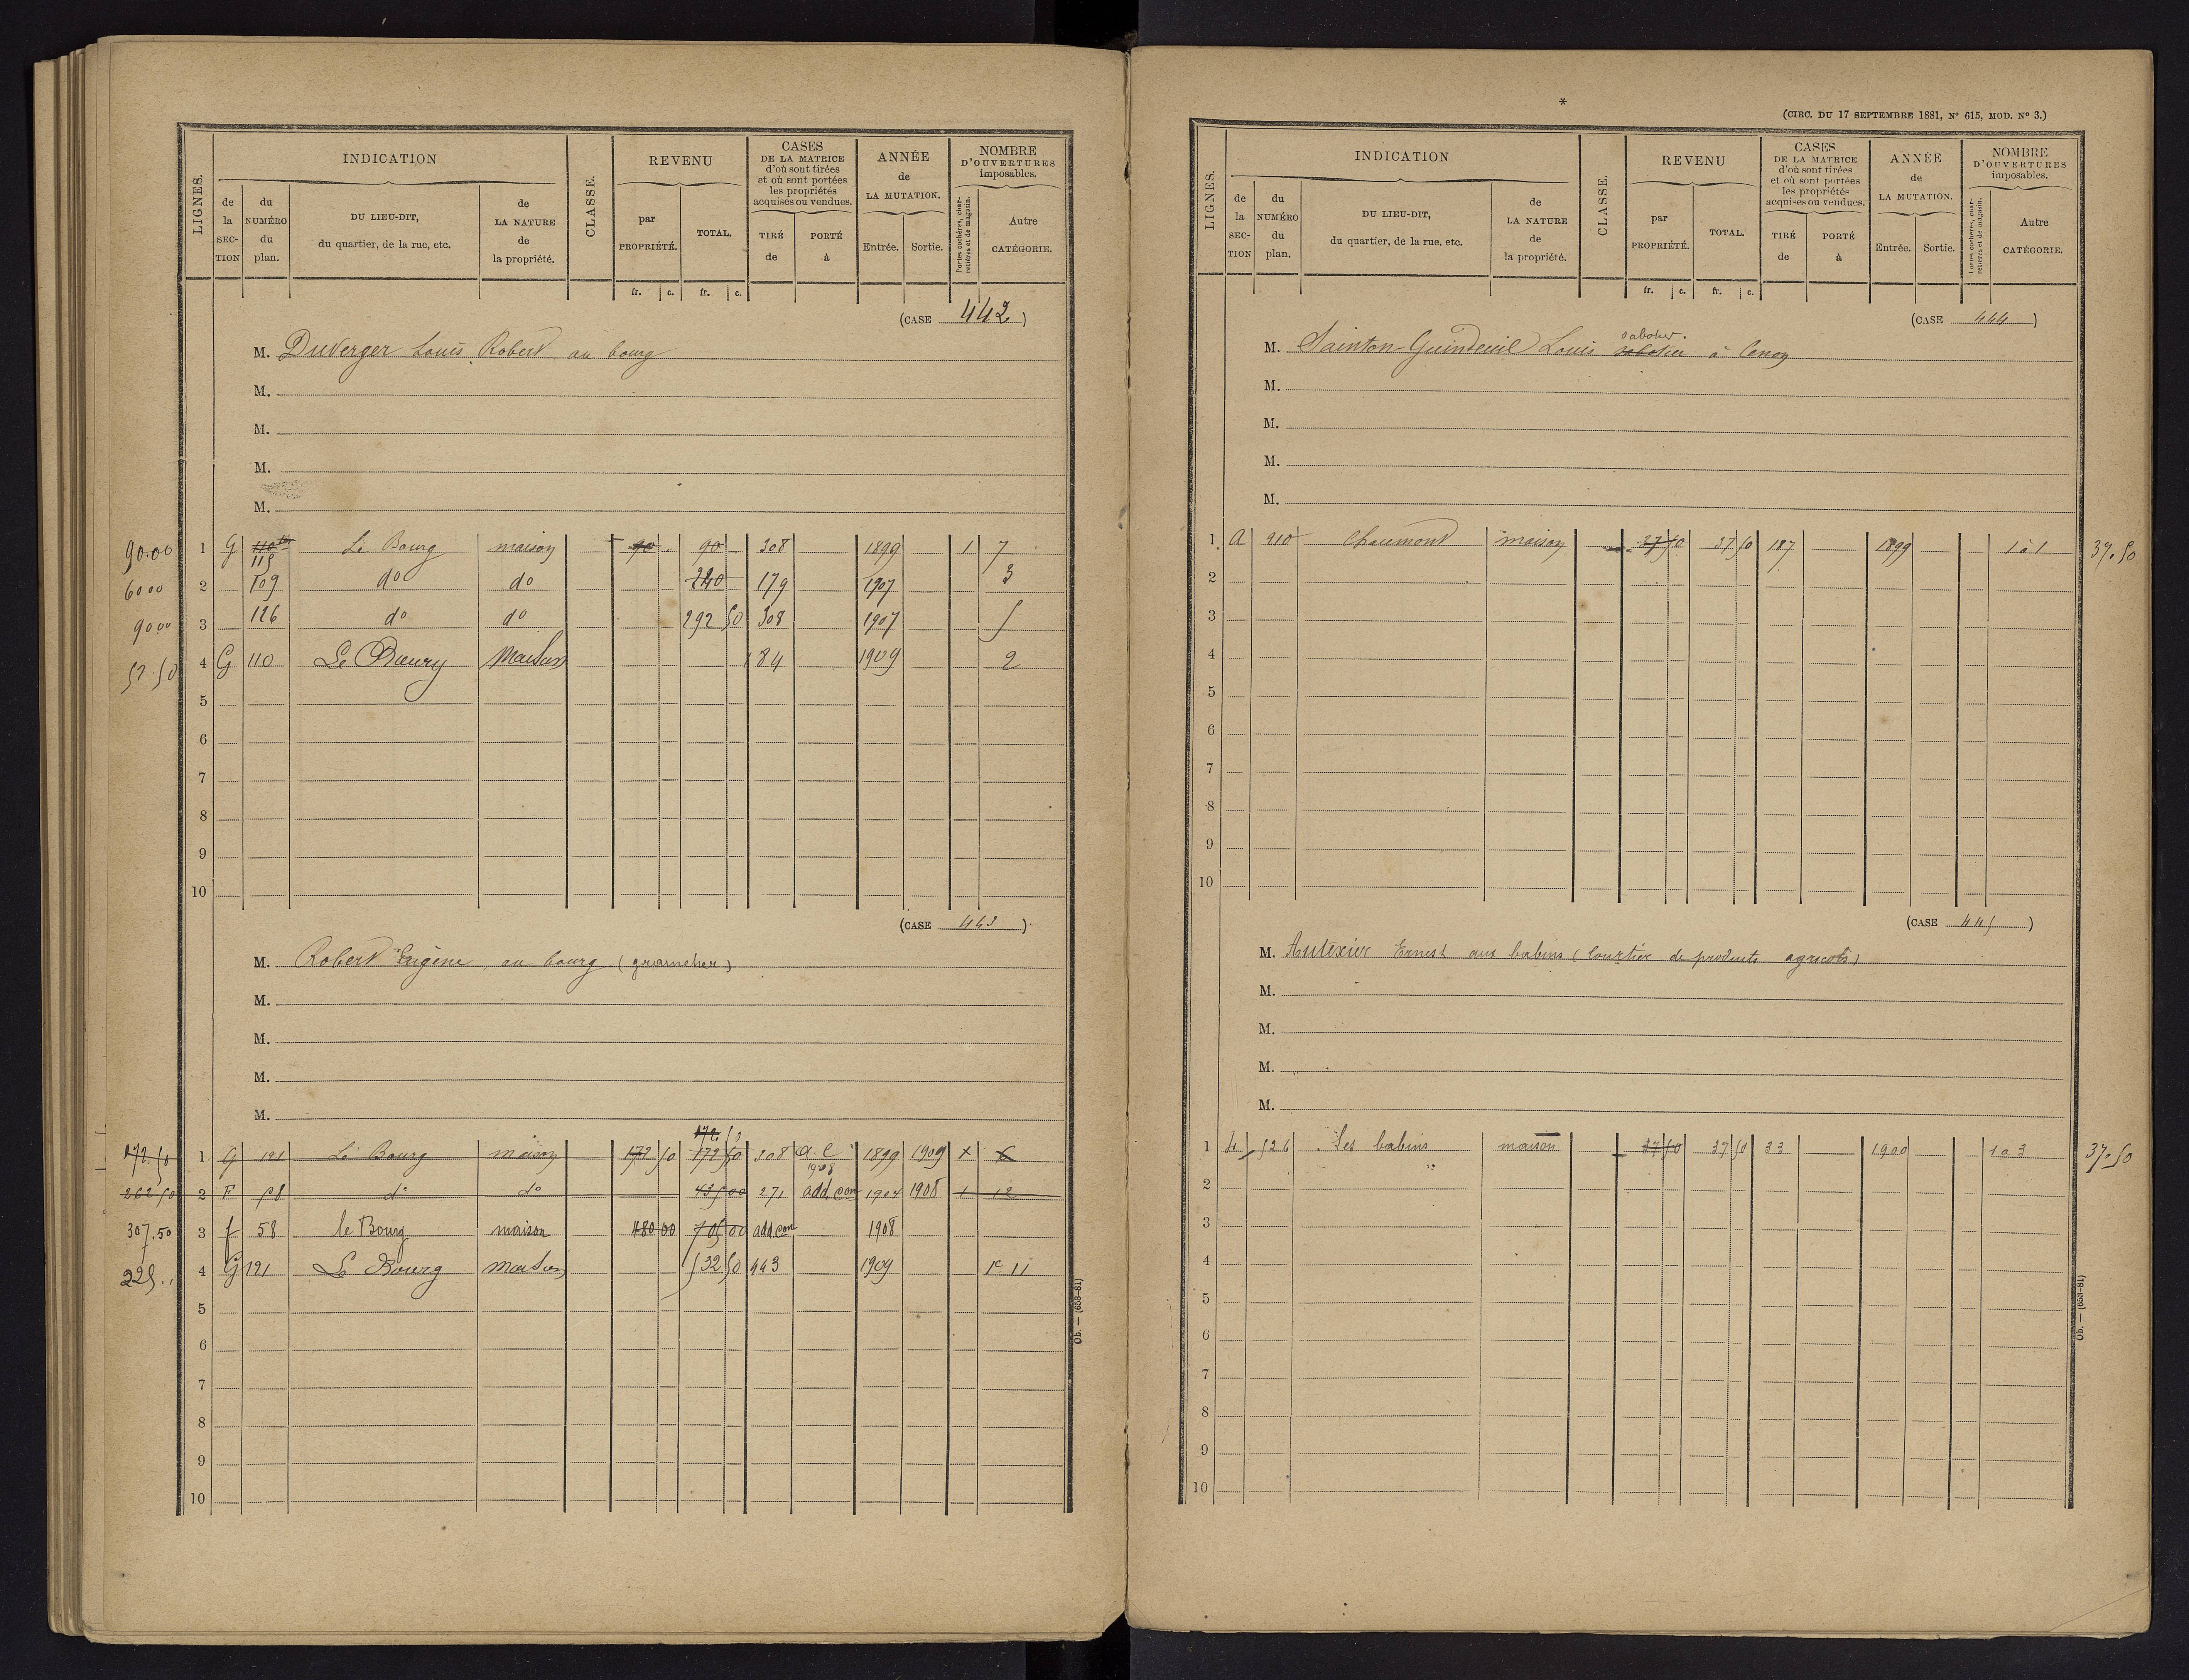 LIGNES.
INDICATION
CLASSE.
REVENU
CASES
DE LA MATRICE
d'où sont tirées
et où sont portées
les propriétés
acquises ou vendues.
ANNÉE
de
LA MUTATION.
NOMBRE
D'OUVERTURES
imposables.
de la SECTION
du NUMÉRO du plan.
DU LIEU-DIT,
du quartier, de la rue, etc.
de LA NATURE de la propriété.
par PROPRIÉTÉ.
TOTAL.
TIRÉ de
PORTÉ à
Entrée.
Sortie.
Portes cochères, charretières et de magasin.
Autre CATÉGORIE.
fr. c. fr. c.
(CASE 442)
M. Duverger Louis Robert au bourg
M.
M.
M.
M.
90.00 1 G 110 115 Le Bourg maison 90 90 308 1899 1 7
60 00 2 109 do do 240 179 1907 3
90 00 3 126 do do 292 50 308 1907 5
52.50 4 G 110 Le Bourg Maison 184 1909 2
5
6
7
8
9
10
(CASE 443)
M. Robert Eugène, au bourg (grainetier)
M.
M.
M.
M.
172 50
172.50 1 G 121 Le Bourg maison 172 50 172 50 308 a. c 1908 1899 1909 x 6
262 50 2 F 58 do do 435 00 271 add. con 1904 1908 1 12
307.50 3 f 58 le Bourg maison 480 00 705 00 add. con 1908
225 .. 4 G 121 Le Bourg Maison 532 50 443 1909 1c 11
5
6
7
8
9
10
Ob. — (653-81)
*
(CIRC. DU 17 SEPTEMBRE 1881, N° 615, MOD. N° 3.)
LIGNES.
INDICATION
CLASSE.
REVENU
CASES
DE LA MATRICE
d'où sont tirées
et où sont portées
les propriétés
acquises ou vendues.
ANNÉE
de
LA MUTATION.
NOMBRE
D'OUVERTURES
imposables.
de la SECTION
du NUMÉRO du plan.
DU LIEU-DIT,
du quartier, de la rue, etc.
de LA NATURE de la propriété.
par PROPRIÉTÉ.
TOTAL.
TIRÉ de
PORTÉ à
Entrée.
Sortie.
Portes cochères, charretières et de magasin.
Autre CATÉGORIE.
fr. c. fr. c.
(CASE 444)
sabotier.
M. Sainton-Guindeuil Louis sabotier à Cenon
M.
M.
M.
M.
1 A 210 Chaumont maison 37 50 37 50 187 1899 1 à 1 37.50
2
3
4
5
6
7
8
9
10
(CASE 445)
M. Autexier Ernest aux babins (Courtier de produits agricols)
M.
M.
M.
M.
1 526 Les babins maison 37 50 37 50 33 1900 1 a 3 37.50
2
3
4
5
6
7
8
9
10
Ob. — (653-81)